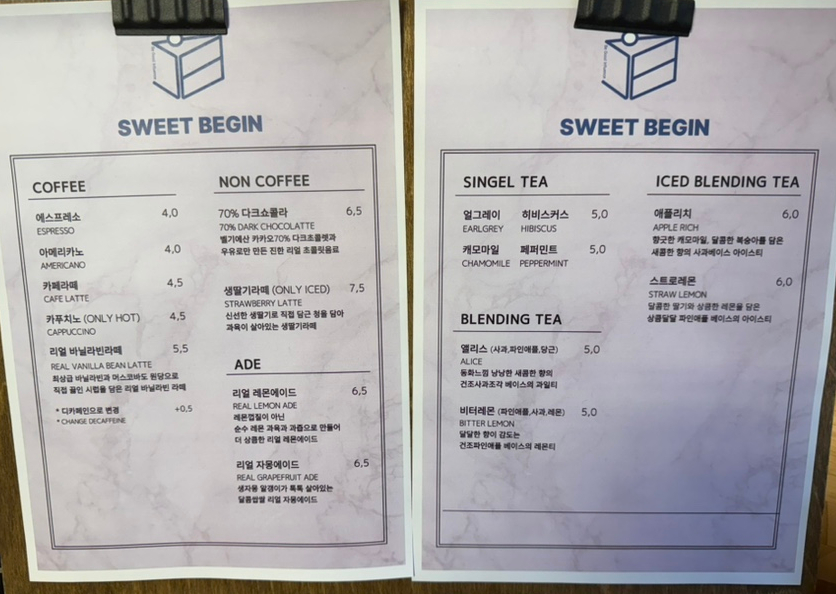 SWEET BEGIN
COFFEE
에스프레소 4,0
ESPRESSO
아메리카노 4,0
AMERICANO
카페라떼 4,5
CAFE LATTE
카푸치노 (ONLY HOT) 4,5
CAPPUCCINO
리얼 바닐라빈라떼 5,5
REAL VANILLA BEAN LATTE
최상급 바닐라빈과 머스코바도 원당으로
직접 끓인 시럽을 담은 리얼 바닐라빈 라떼
* 디카페인으로 변경 +0,5
* CHANGE DECAFFEINE
NON COFFEE
70% 다크쇼콜라 6,5
70% DARK CHOCOLATTE
벨기에산 카카오70% 다크초콜렛과
우유로만 만든 진한 리얼 초콜릿음료
생딸기라떼 (ONLY ICED) 7,5
STRAWBERRY LATTE
신선한 생딸기로 직접 담근 청을 담아
과육이 살아있는 생딸기라떼
ADE
리얼 레몬에이드 6,5
REAL LEMON ADE
레몬껍질이 아닌
순수 레몬 과육과 과즙으로 만들어
더 상큼한 리얼 레몬에이드
리얼 자몽에이드 6,5
REAL GRAPEFRUIT ADE
생자몽 알갱이가 톡톡 살아있는
달콤쌉쌀 리얼 자몽에이드
SWEET BEGIN
SINGEL TEA
얼그레이 히비스커스 5,0
EARLGREY HIBISCUS
캐모마일 페퍼민트 5,0
CHAMOMILE PEPPERMINT
BLENDING TEA
앨리스 (사과,파인애플,당근) 5,0
ALICE
동화느낌 낭낭한 새콤한 향의
건조사과조각 베이스의 과일티
비터레몬 (파인애플,사과,레몬) 5,0
BITTER LEMON
달달한 향이 감도는
건조파인애플 베이스의 레몬티
ICED BLENDING TEA
애플리치 6,0
APPLE RICH
향긋한 캐모마일, 달콤한 복숭아를 담은
새콤한 향의 사과베이스 아이스티
스트로레몬 6,0
STRAW LEMON
달콤한 딸기와 상큼한 레몬을 담은
상큼달달 파인애플 베이스의 아이스티